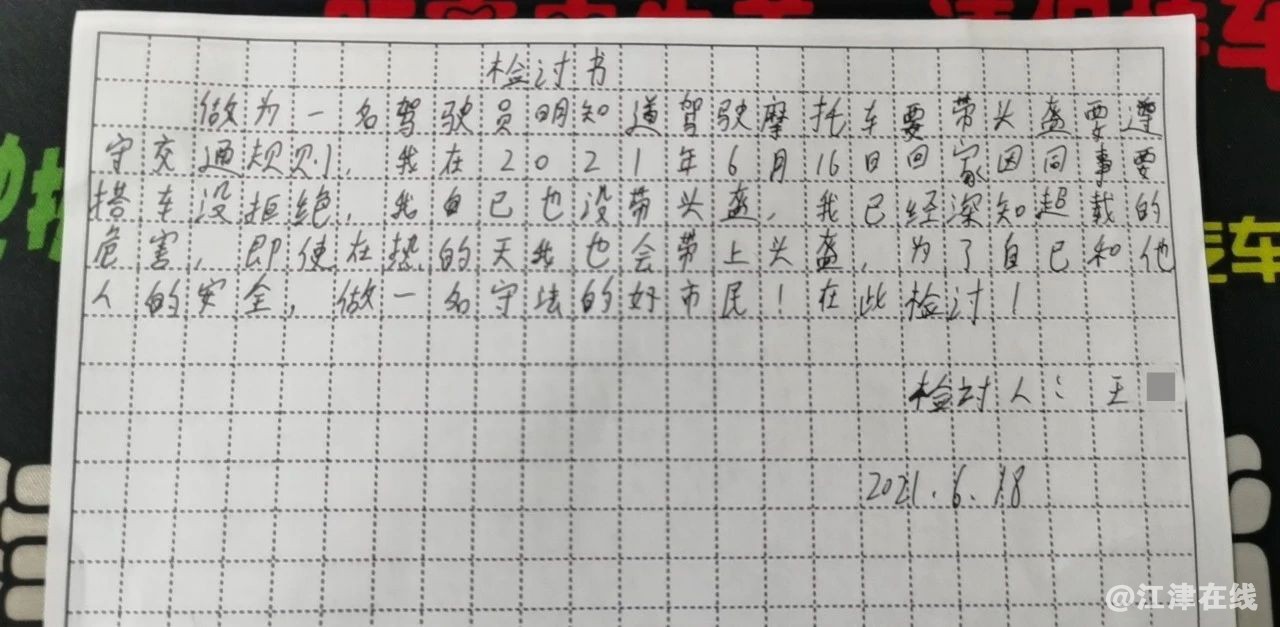 检讨书
做为一名驾驶员明知道驾驶摩托车要带头盔要遵
守交通规则，我在2021年6月16日回家因同事要
搭车没拒绝，我自己也没带头盔，我已经深知超载的
危害，即使在热的天我也会带上头盔，为了自己和他
人的安全，做一名守法的好市民！在此检讨！
检讨人：王
2021.6.18
车
@江津在线